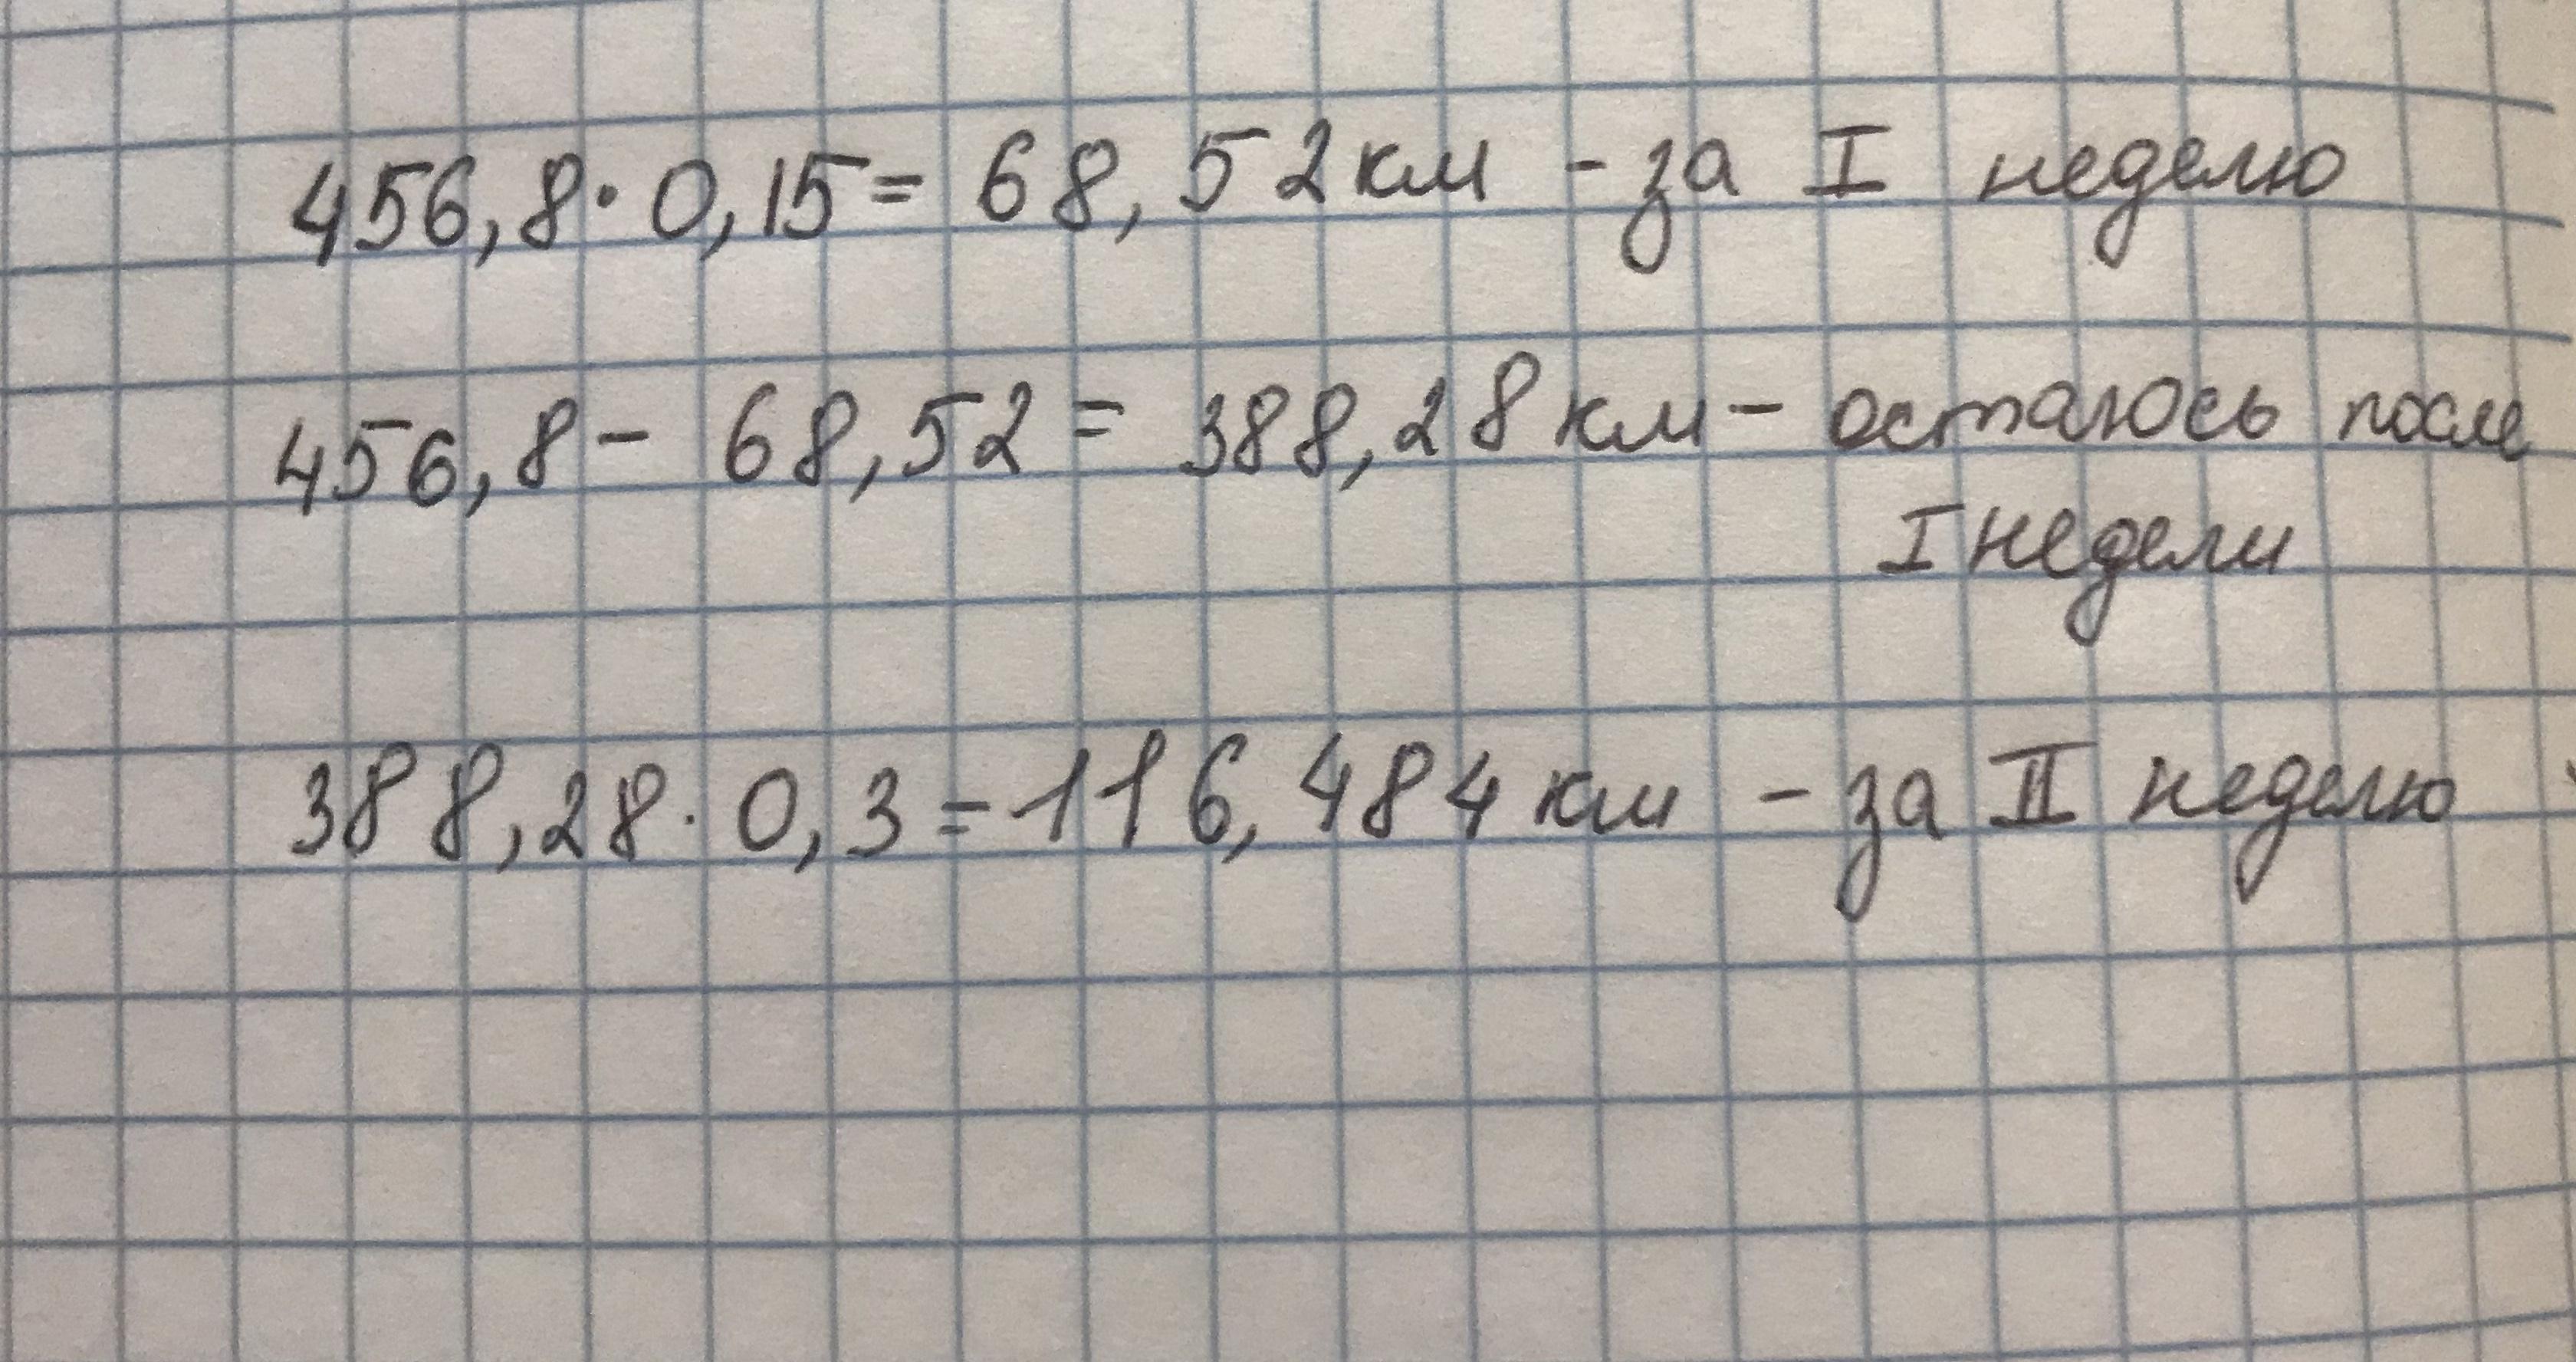 456,8·0,15=68,52км - за I неделю
456,8- 68,52= 388,28км- осталось после
I недели
388,28·0,3=116,484км - за II неделю